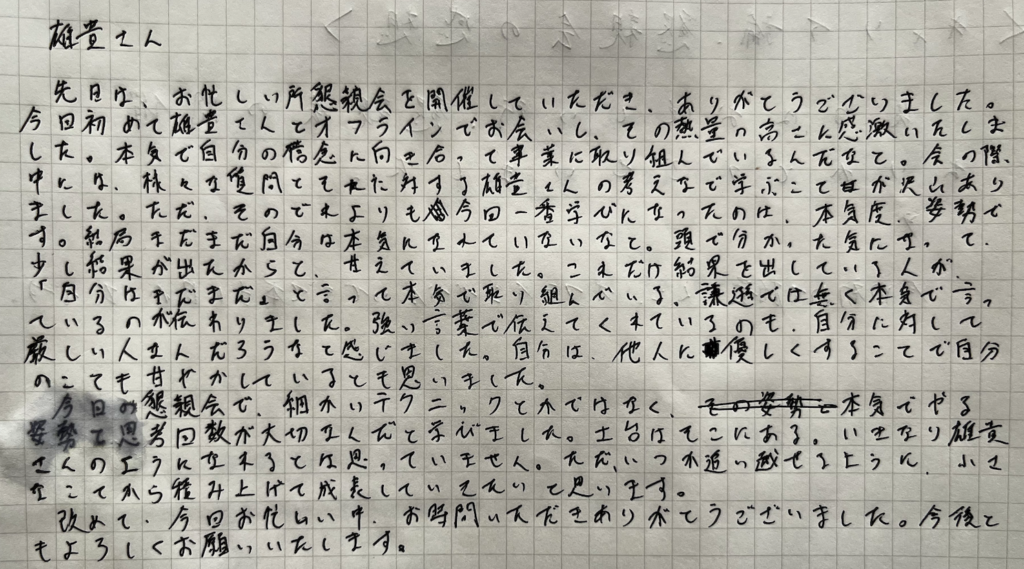 雄貴さん
先日は、お忙しい所懇親会を開催していただき、ありがとうございました。
今回初めて雄貴さんとオフラインでお会いし、その熱量の高さに感激いたしま
した。本気で自分の信念に向き合って事業に取り組んでいるんだなと。会の際、
中には、様々な質問とそれに対する雄貴さんの考えなで学ぶことが沢山あり
ました。ただ、そのどれよりも今回一番学びになったのは、本気度、姿勢で
す。結局まだまだ自分は本気になれていないなと。頭で分かった気になって、
少し結果が出たからと、甘えていました。これだけ結果を出している人が、
「自分はまだまだ」と言って本気で取り組んでいる。謙遜では無く本気で言っ
ているのが伝わりました。強い言葉で伝えてくれているのも、自分に対して
厳しい人なんだろうなと感じました。自分は、他人に優しくすることで自分
のことも甘やかしているとも思いました。
今回の懇親会で、細かいテクニックとかではなく、その姿勢と本気でやる
姿勢て思考回数が大切なんだと学びました。土台はそこにある。いきなり雄貴
さんのようになれるとは思っていません。ただ、いつか追い越せるように、小さ
なことから積み上げて成長していきたいと思います。
改めて、今回お忙しい中、お時間いただきありがとうございました。今後と
もよろしくお願いいたします。